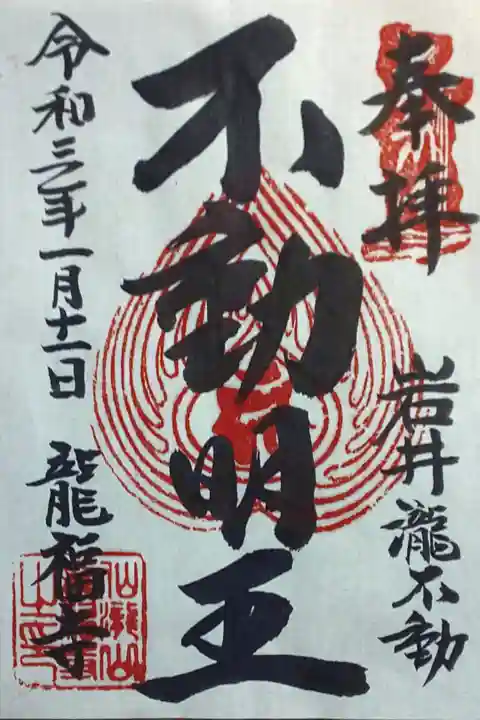 奉拝
岩井瀧不動
不動明王
令和三年一月十一日 龍福寺